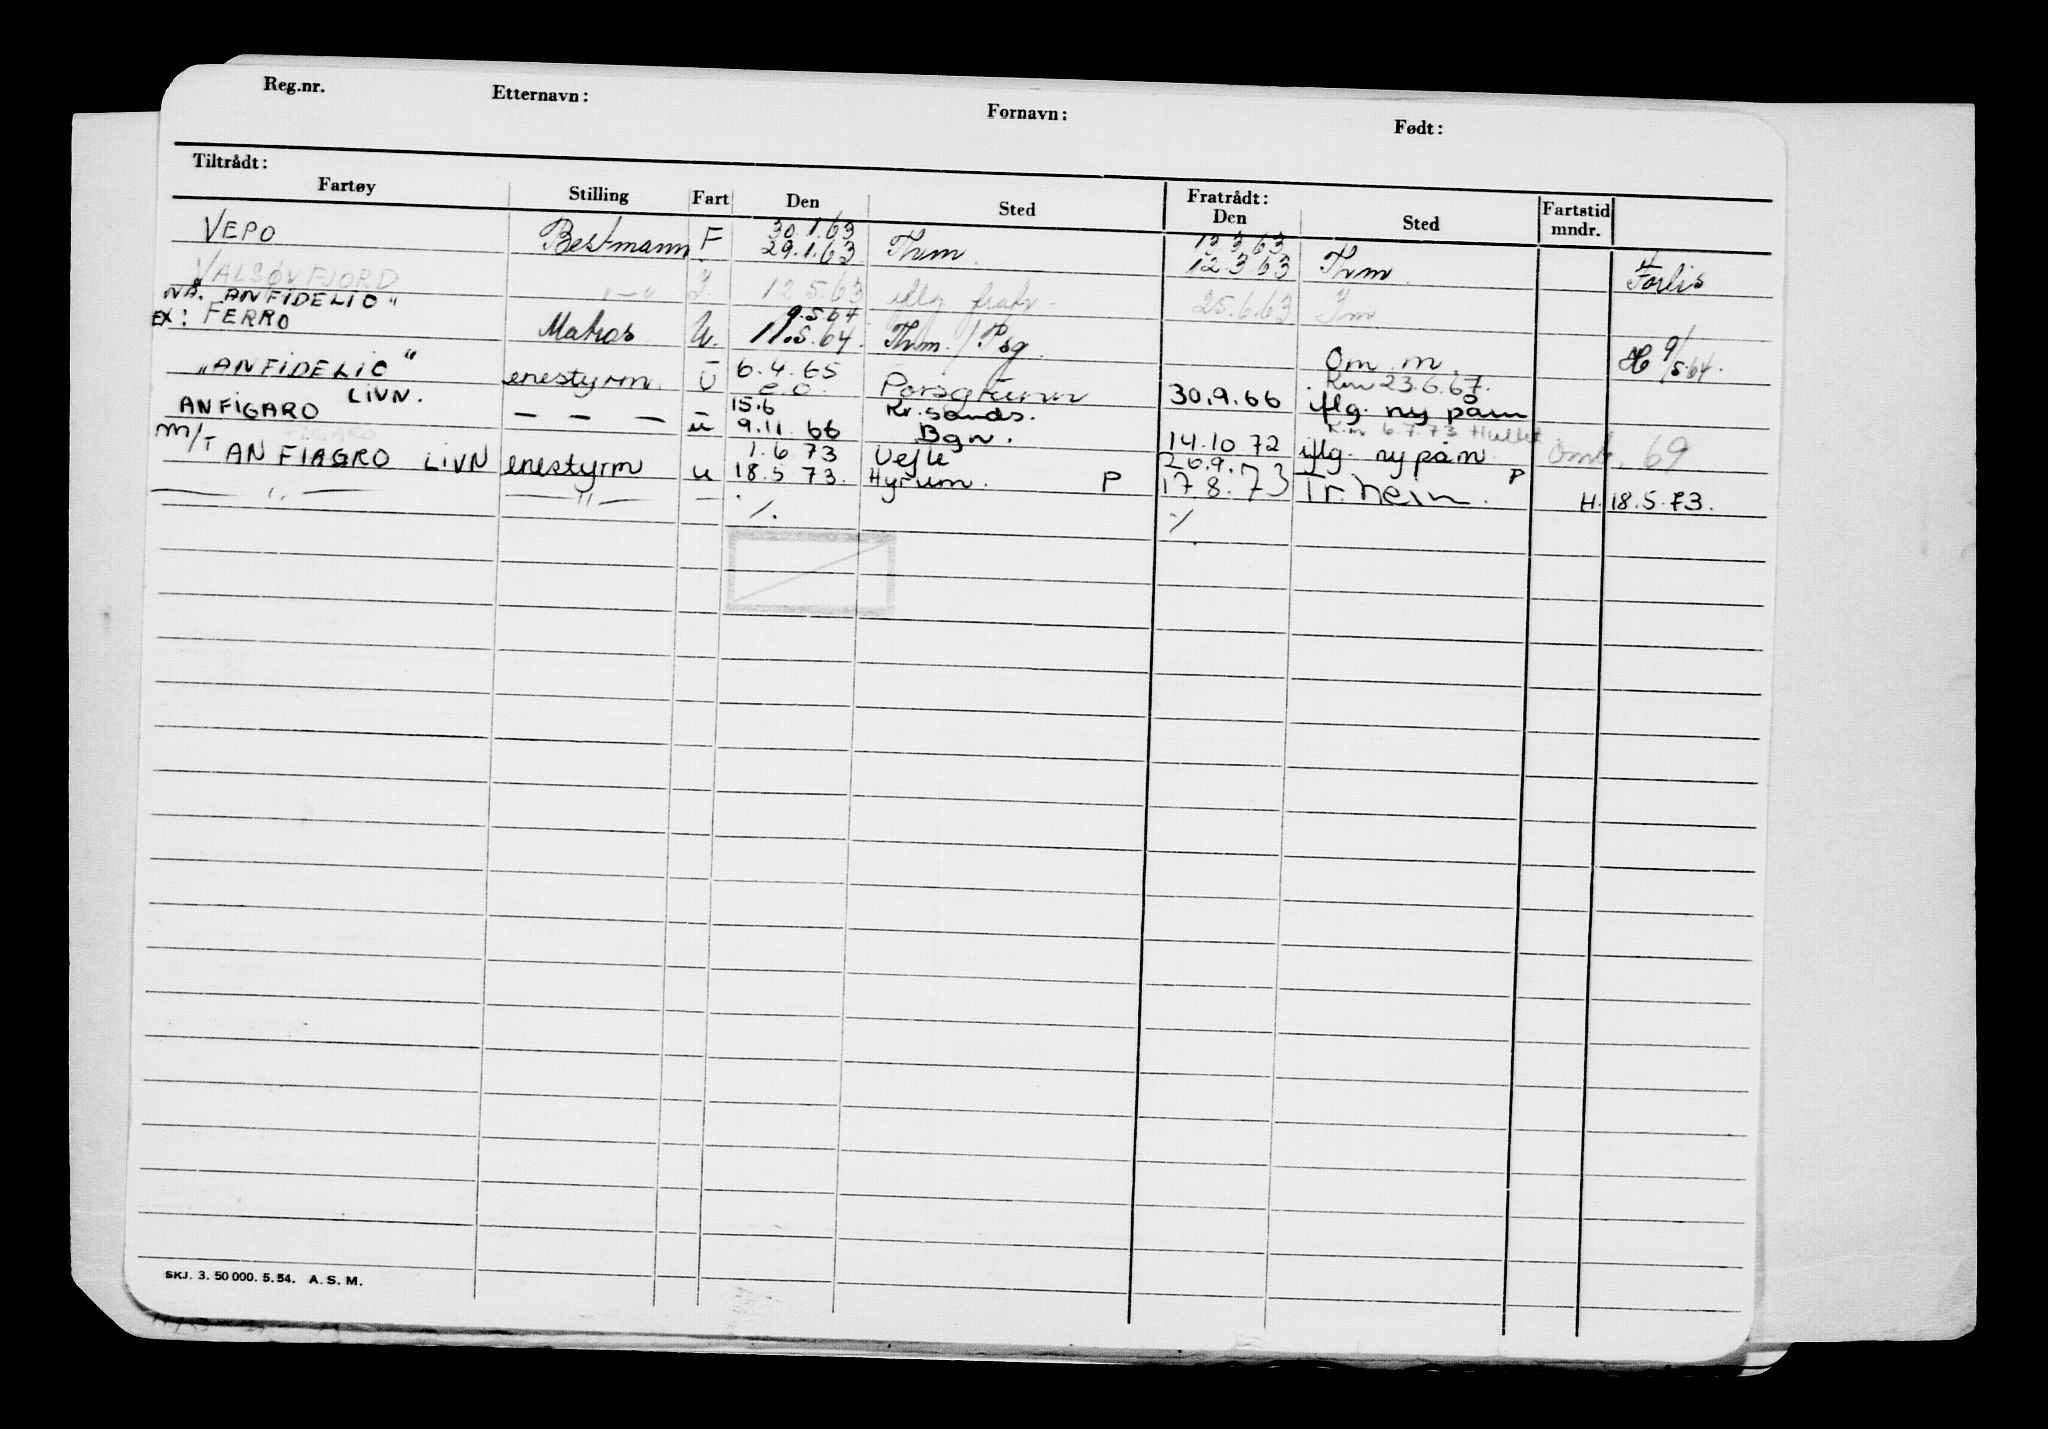 Reg.nr. Etternavn: Fornavn: Født:
Tiltrådt: Fratrådt:
Fartøy Stilling Fart Den Sted Den Sted Fartstid mndr.
30.1.63 13.3.63
VEPO Bestmann F 29.1.63 Thm. 12.3.63 Thm. Forlis
VALSØVFJORD —"— 12.5.63 iflg. fratr. 25.6.63
NÅ. "ANFIDELIO" 9.5.64
EX: FERRO Matros U. 11.5.64. Thm. / Psg. Om. m. H 9/5.64.
"ANFIDELIO" 6.4.65 Km 23.6.67.
LIVN. enestyrm. U e.o. Porsgrunn 30.9.66 iflg. ny påm
15.6 Kr.sands. K.m 6.7.73
ANFIGARO — — — u 9.11.66 Bgn. 14.10 72 iflg. ny påm Omb. 69
FIGARO 1.6 73 Vejle 26.9.73
M/T ANFIAGRO LIVN enestyrm u 18.5 73. P 17.8.73 Tr.heim. P H. 18.5.73.
— " — — " — — ./. ./.
SKJ. 3. 50 000. 5.54. A. S. M.